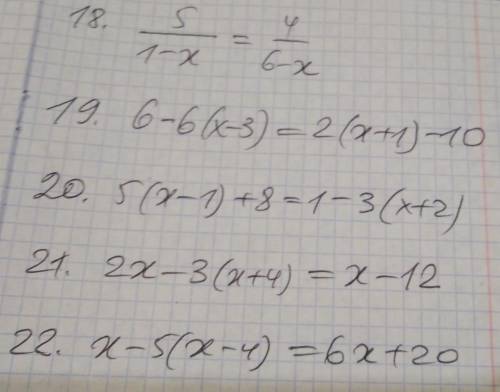 18. 5/(1-x) = 4/(6-x)
19. 6-6(x-3)=2(x+1)-10
20. 5(x-1)+8=1-3(x+2)
21. 2x-3(x+4)=x-12
22. x-5(x-4)=6x+20